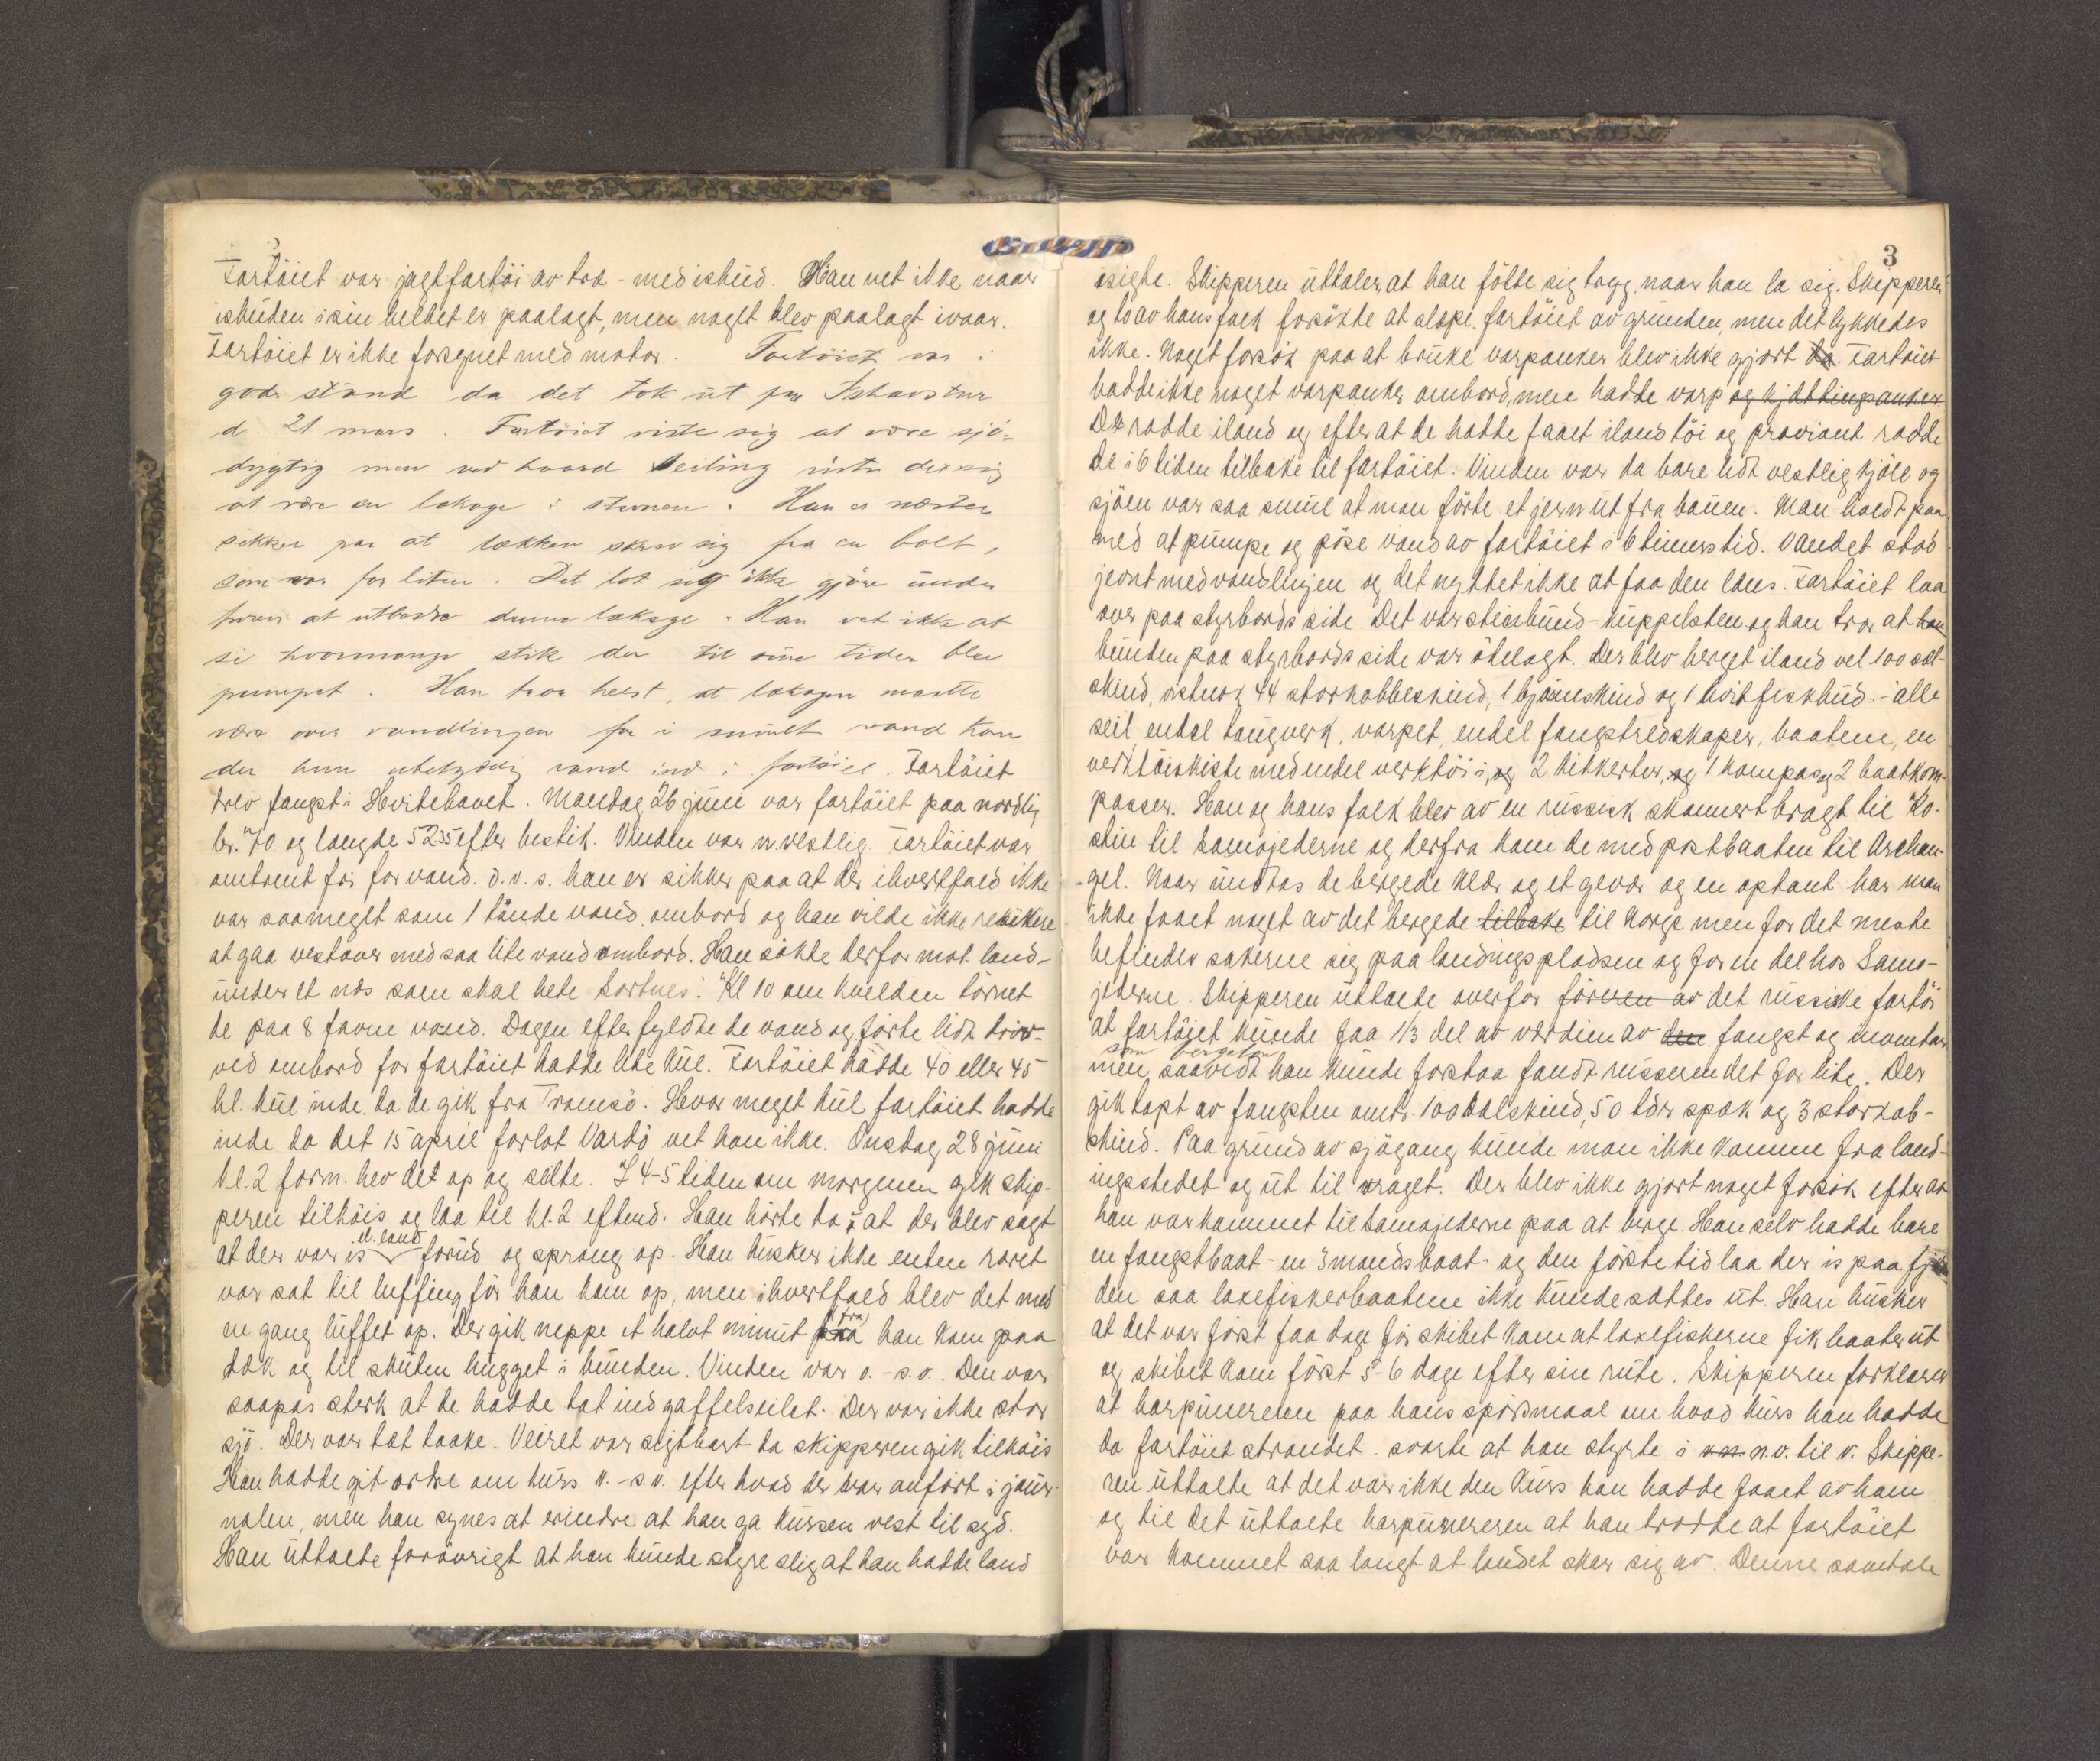 Fartöiet var jagtfartöi av træ - med ishud. Han vet ikke naar
ishuden i sin helhet er paalagt, men noget blev paalagt ivaar.
Fartöiet er ikke forsynet med motor. Fartöiet var i
god stand da det tok ut paa Ishavstur
d. 21 mars. Fartöiet viste sig at være sjö-
dygtig men ved haard Seiling viste der sig
at være en lækage i stevnen. Han er næsten
sikker paa at lækken skrev sig fra en bolt,
som var for liten. Det lot sig ikke gjöre under
turen at utbedre denne lækage. Han vet ikke at
si hvormange stik der til sine tider blev
pumpet. Han tror helst, at lækagen maatte
være over vandlinjen for i smult vand kom
der kun ubetydelig vand ind i fartöiet. Fartöiet
drev fangst i Hvitehavet. Mandag 26 juni var fartöiet paa nordlig
br. 70 og længde 52 35 efter bestik. Vinden var n. vestlig. Fartöiet var
omtrent fri for vand. d.v.s. han er sikker paa at der ihvertfald ikke
var saameget som 1 tönde vand ombord og han vilde ikke resikere
at gaa vestover med saa lite vand ombord. Han sökte derfor mot land-
under et næs som skal hete Sortnes. Kl 10 om kvelden törnet
de paa 8 favne vand. Dagen efter fyldte de vand og förte lidt driv-
ved ombord for fartöiet hadde lite kul. Fartöiet hadde 40 eller 45
hl. kul inde, da de gik fra Tromsö. Hvor meget kul fartöiet hadde
inde da det 15 april forlot Vardö vet han ikke. Onsdag 28 juni
kl. 2 form. hev det op og seilte. I 4-5 tiden om morgenen gik skip-
peren tilköis og laa til kl. 2 eftmd. Han hörte da at der blev sagt
at der var is el. land forud og sprang op. Han husker ikke enten roret
var sat til luffing för han kom op, men ihvertfald blev det med
en gang luffet op. Der gik neppe et halvt minut fra han kom paa
dæk og til skuten hugget i bunden. Vinden var o.-s.o. Den var
saapas sterk at de hadde tat ind gaffelseilet. Der var ikke stor
sjö. Der var tæt taake. Veiret var sigtbart da skipperen gik tilköis
Han hadde git ordre om kurs v.-s.v. efter hvad der var anfört i jour-
nalen, men han synes at erindre at han ga kursen vest til syd.
Han uttalte forövrigt at han kunde styre slig at han hadde land
3
isigte. Skipperen uttaler, at han fölte sig tryg naar han la sig. Skipperen
og to av hans folk forsökte at slæpe fartöiet av grunden, men det lykkedes
ikke. Noget forsök paa at bruke varpanker blev ikke gjort da. Fartöiet
hadde ikke noget varpanker ombord, men hadde varp og kjættinganker
De rodde iland og efter at de hadde faaet iland töi og proviant rodde
de i 6 tiden tilbake til fartöiet. Vinden var da bare lidt vestlig kjöle og
sjöen var saa smul at man förte et jern ut fra bauen. Man holdt paa
med at pumpe og pöse vand av fartöiet i 6 timers tid. Vandet stod
jevnt med vandlinjen og det nyttet ikke at faa den læns. Fartöiet laa
over paa styrbords side. Det var stenbund - kuppelsten og han tror at han
bunden paa styrbords side var ödelagt. Der blev berget iland vel 100 sæl-
skind, vistnok 44 storkobbeskind, 1 björneskind og 1 hvitfiskhud - alle
seil, endel taugverk, varpet, endel fangstredskaper, baatene, en
verktöiskiste med endel verktöi i, og 2 kikkerter, og 1 kompas og 2 baatkom-
passer. Han og hans folk blev av en russisk skonnert bragt til Ko-
stin til Samojederne og derfra kom de med postbaaten til Archan-
gel. Naar undtas de bergede klær og et gevær og en oktant har man
ikke faaet noget av det bergede tilbake til Norge men for det meste
befinder sakerne sig paa landingspladsen og for en del hos Samo-
jederne. Skipperen uttalte overfor föreren av det russiske fartöi
at fartöiet kunde faa 1/3 del av værdien av den fangst og inventar
som bergeløn
men saavidt han kunde forstaa fandt russeren det for lite. Der
gik tapt av fangsten omtr. 100 sælskind, 50 tdr spæk og 3 storkob-
skind. Paa grund av sjögang kunde man ikke komme fra land-
ingsstedet og ut til vraget. Der blev ikke gjort noget forsök efter at
han var kommet til Samojederne paa at berge. Han selv hadde bare
en fangstbaat - en 3mandsbaat - og den förste tid laa der is paa fjor
den saa laxefiskerbaatene ikke kunde sættes ut. Han husker
at det var först faa dage för skibet kom at laxefiskerne fik baater ut
og skibet kom först 5-6 dage efter sin rute. Skipperen forklarer
at harpuneren paa hans spörsmaal om hvad kurs han hadde
da fartöiet strandet svarte at han styrte i n.v. til v. Skippe-
ren uttalte at det var ikke den kurs han hadde faaet av ham
og til det uttalte harpuneren at han trodde at fartöiet
var kommet saa langt at landet skar sig av. Denne samtale